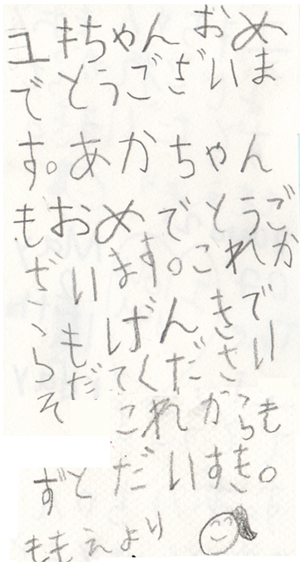 ユキちゃんおめ
でとうございま
す。あかちゃん
もおめでとうご
ざいます。これか
らもげんきで
そだてください
これからも
ずとだいすき。
ももえより